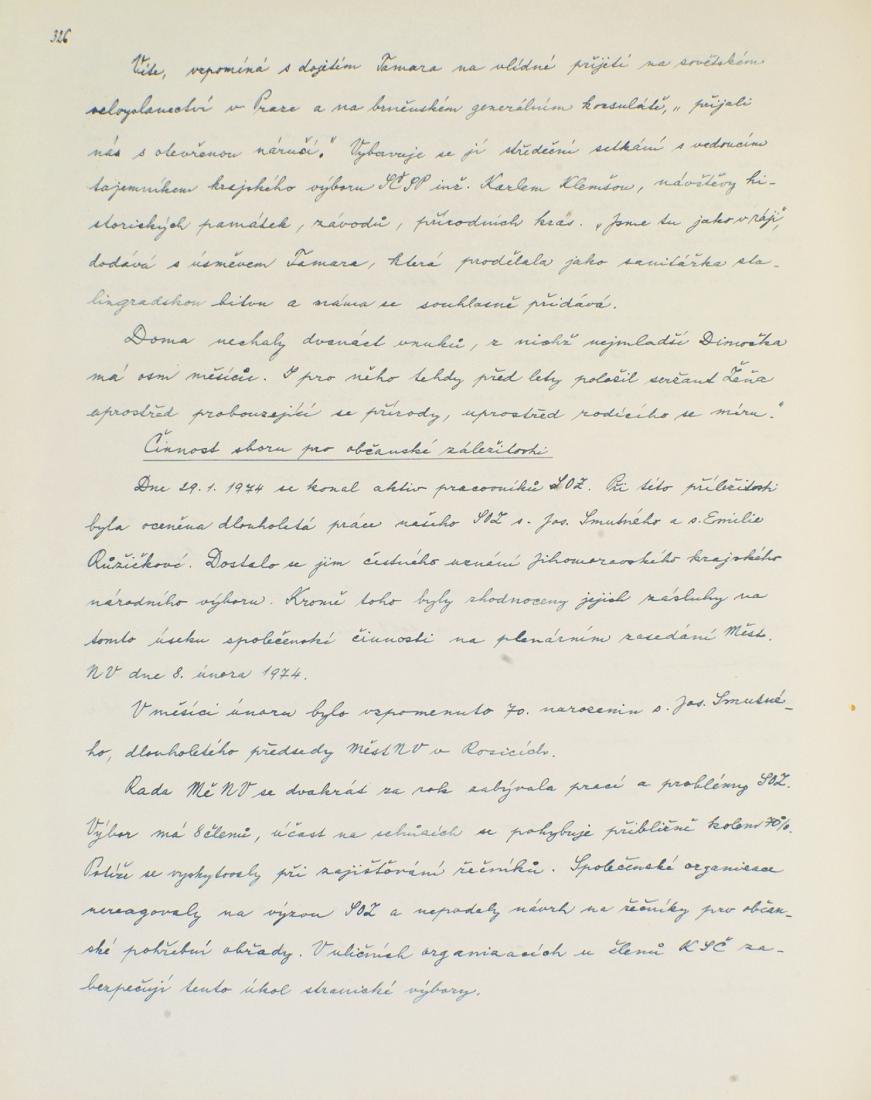 326
Víte, vzpomíná s dojetím Tamara na vlídné přijetí na sovětském
velvyslanectví v Praze a na brněnském generálním konsulátě, „přijali
nás s otevřenou náručí." Vybavuje se jí střédeční setkání s vedoucím
tajemníkem krajského výboru SČSP inž. Karlem Klemšou, návštěvy hi-
storických památek, závodů, přírodních krás. „Jsme tu jako v ráji",
dodává s úsměvem Tamara, která prodělala jako sanitářka sta-
lingradskou bitvu a máma se souhlasně přidává.
Doma nechaly dvanáct vnuků, z nichž nejmladší Dimočka
má osm měsíců. I pro něho tehdy před lety položil seržant Žeňa
uprostřed probouzející se přírody, uprostřed rodícího se míru."
Činnost sboru pro občanské záležitosti
Dne 29.1. 1974 se konal aktiv pracovníků SOZ. Při této příležitosti
byla oceněna dlouholetá práce našeho SOZ s. Jos. Smutného a s. Emilie
Růžičkové. Dostalo se jim čestného uznání Jihomoravského krajského
národního výboru. Kromě toho byly zhodnoceny jejich zásluhy na
tomto úseku společenské činnosti na plenárním zasedání Měst.
NV dne 8. února 1974.
V měsíci únoru bylo vzpomenuto 70. narozenin s. Jos. Smutné-
ho, dlouholetého předsedy MěstNV v Rosicích.
Rada MěNV se dvakrát za rok zabývala prací a problémy SOZ.
Výbor má 8 členů, účast na schůzích se pohybuje přibližně kolem 70%.
Potíže se vyskytovaly při zajišťování řečníků. Společenské organizace
nereagovaly na výzvu SOZ a nepodaly návrh na řečníky pro občan-
ské pohřební obřady. V uličních organizacích u členů KSČ za-
bezpečují tento úkol stranické výbory.